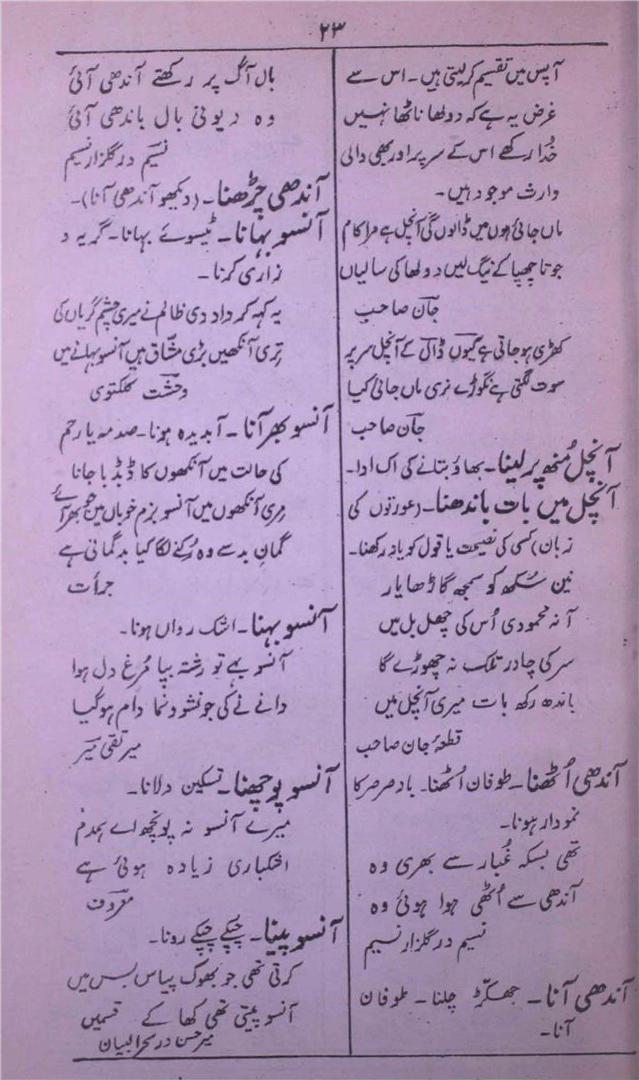 ۲۳
آپس میں تقسیم کرلیتی ہیں۔ اس سے
غرض یہ ہے کہ دولھا ناٹھا نہیں
خُدا رکھے اس کے سر پر اور بھی والی
وارث موجود ہیں۔
ماں جائی ہوں میں ڈالوں گی آنچل ہے مرا کام
جوتا چھپا کے نیگ لیں دولھا کی سالیاں
جان صاحب
کھڑی ہو جاتی ہے کیوں ڈال کے آنچل سر پہ
سوت لگتی ہے نگوڑے نری ماں جائی کیا
جان صاحب
آنچل مُنھ پر لینا۔ بھاؤ بتانے کی اک ادا۔
آنچل میں بات باندھنا۔ (عورتوں کی
زبان) کسی کی نصیحت یا قول کو یاد رکھنا۔
نین سُکھ کو سمجھ گاڑھا یار
آ نہ محمودی اُس کی چھل بل میں
سر کی چادر تلک نہ چھوڑے گا
باندھ رکھ بات میری آنچل میں
قطعۂ جان صاحب
آندھی اُٹھنا۔ طوفان اُٹھنا۔ بادِ صرصر کا
نمودار ہونا۔
تھی بسکہ غُبار سے بھری وہ
آندھی سے اُٹھی ہوا ہوئی وہ
نسیم در گلزار نسیم
آندھی آنا۔ جھکڑ چلنا۔ طوفان
آنا۔
بال آگ پر رکھتے آندھی آئی
وہ دیونی بال باندھی آئی
نسیم در گلزار نسیم
آندھی چڑھنا۔ (دیکھو آندھی آنا)۔
آنسو بہانا۔ ٹیسوے بہانا۔ گریہ و
زاری کرنا۔
یہ کہہ کر داد دی ظالم نے میری چشم گریاں کی
تری آنکھیں بڑی مشاق ہیں آنسو بہانے میں
وحشت کلکتوی
آنسو بھر آنا۔ آبدیدہ ہونا۔ صدمہ یا رحم
کی حالت میں آنکھوں کا ڈبڈبا جانا
مری آنکھوں میں آنسو بزم خوباں میں جو بھر آئے
گمانِ بد سے وہ رُکنے لگا کیا بدگمانی ہے
جرأت
آنسو بہنا۔ اشک رواں ہونا۔
آنسو بہے تو رشتہ بپا مُرغِ دل ہوا
دانے نے کی جو نشوونما دام ہو گیا
میر تقی میر
آنسو پوچھنا۔ تسکین دلانا۔
میرے آنسو نہ پونچھ اے ہمدم
اشکباری زیادہ ہوئی ہے
معروف
آنسو پینا۔ چپکے چپکے رونا۔
کرتی تھی جو بھوک پیاس بس میں
آنسو پیتی تھی کھا کے قسمیں
میر حسن در سحر البیان